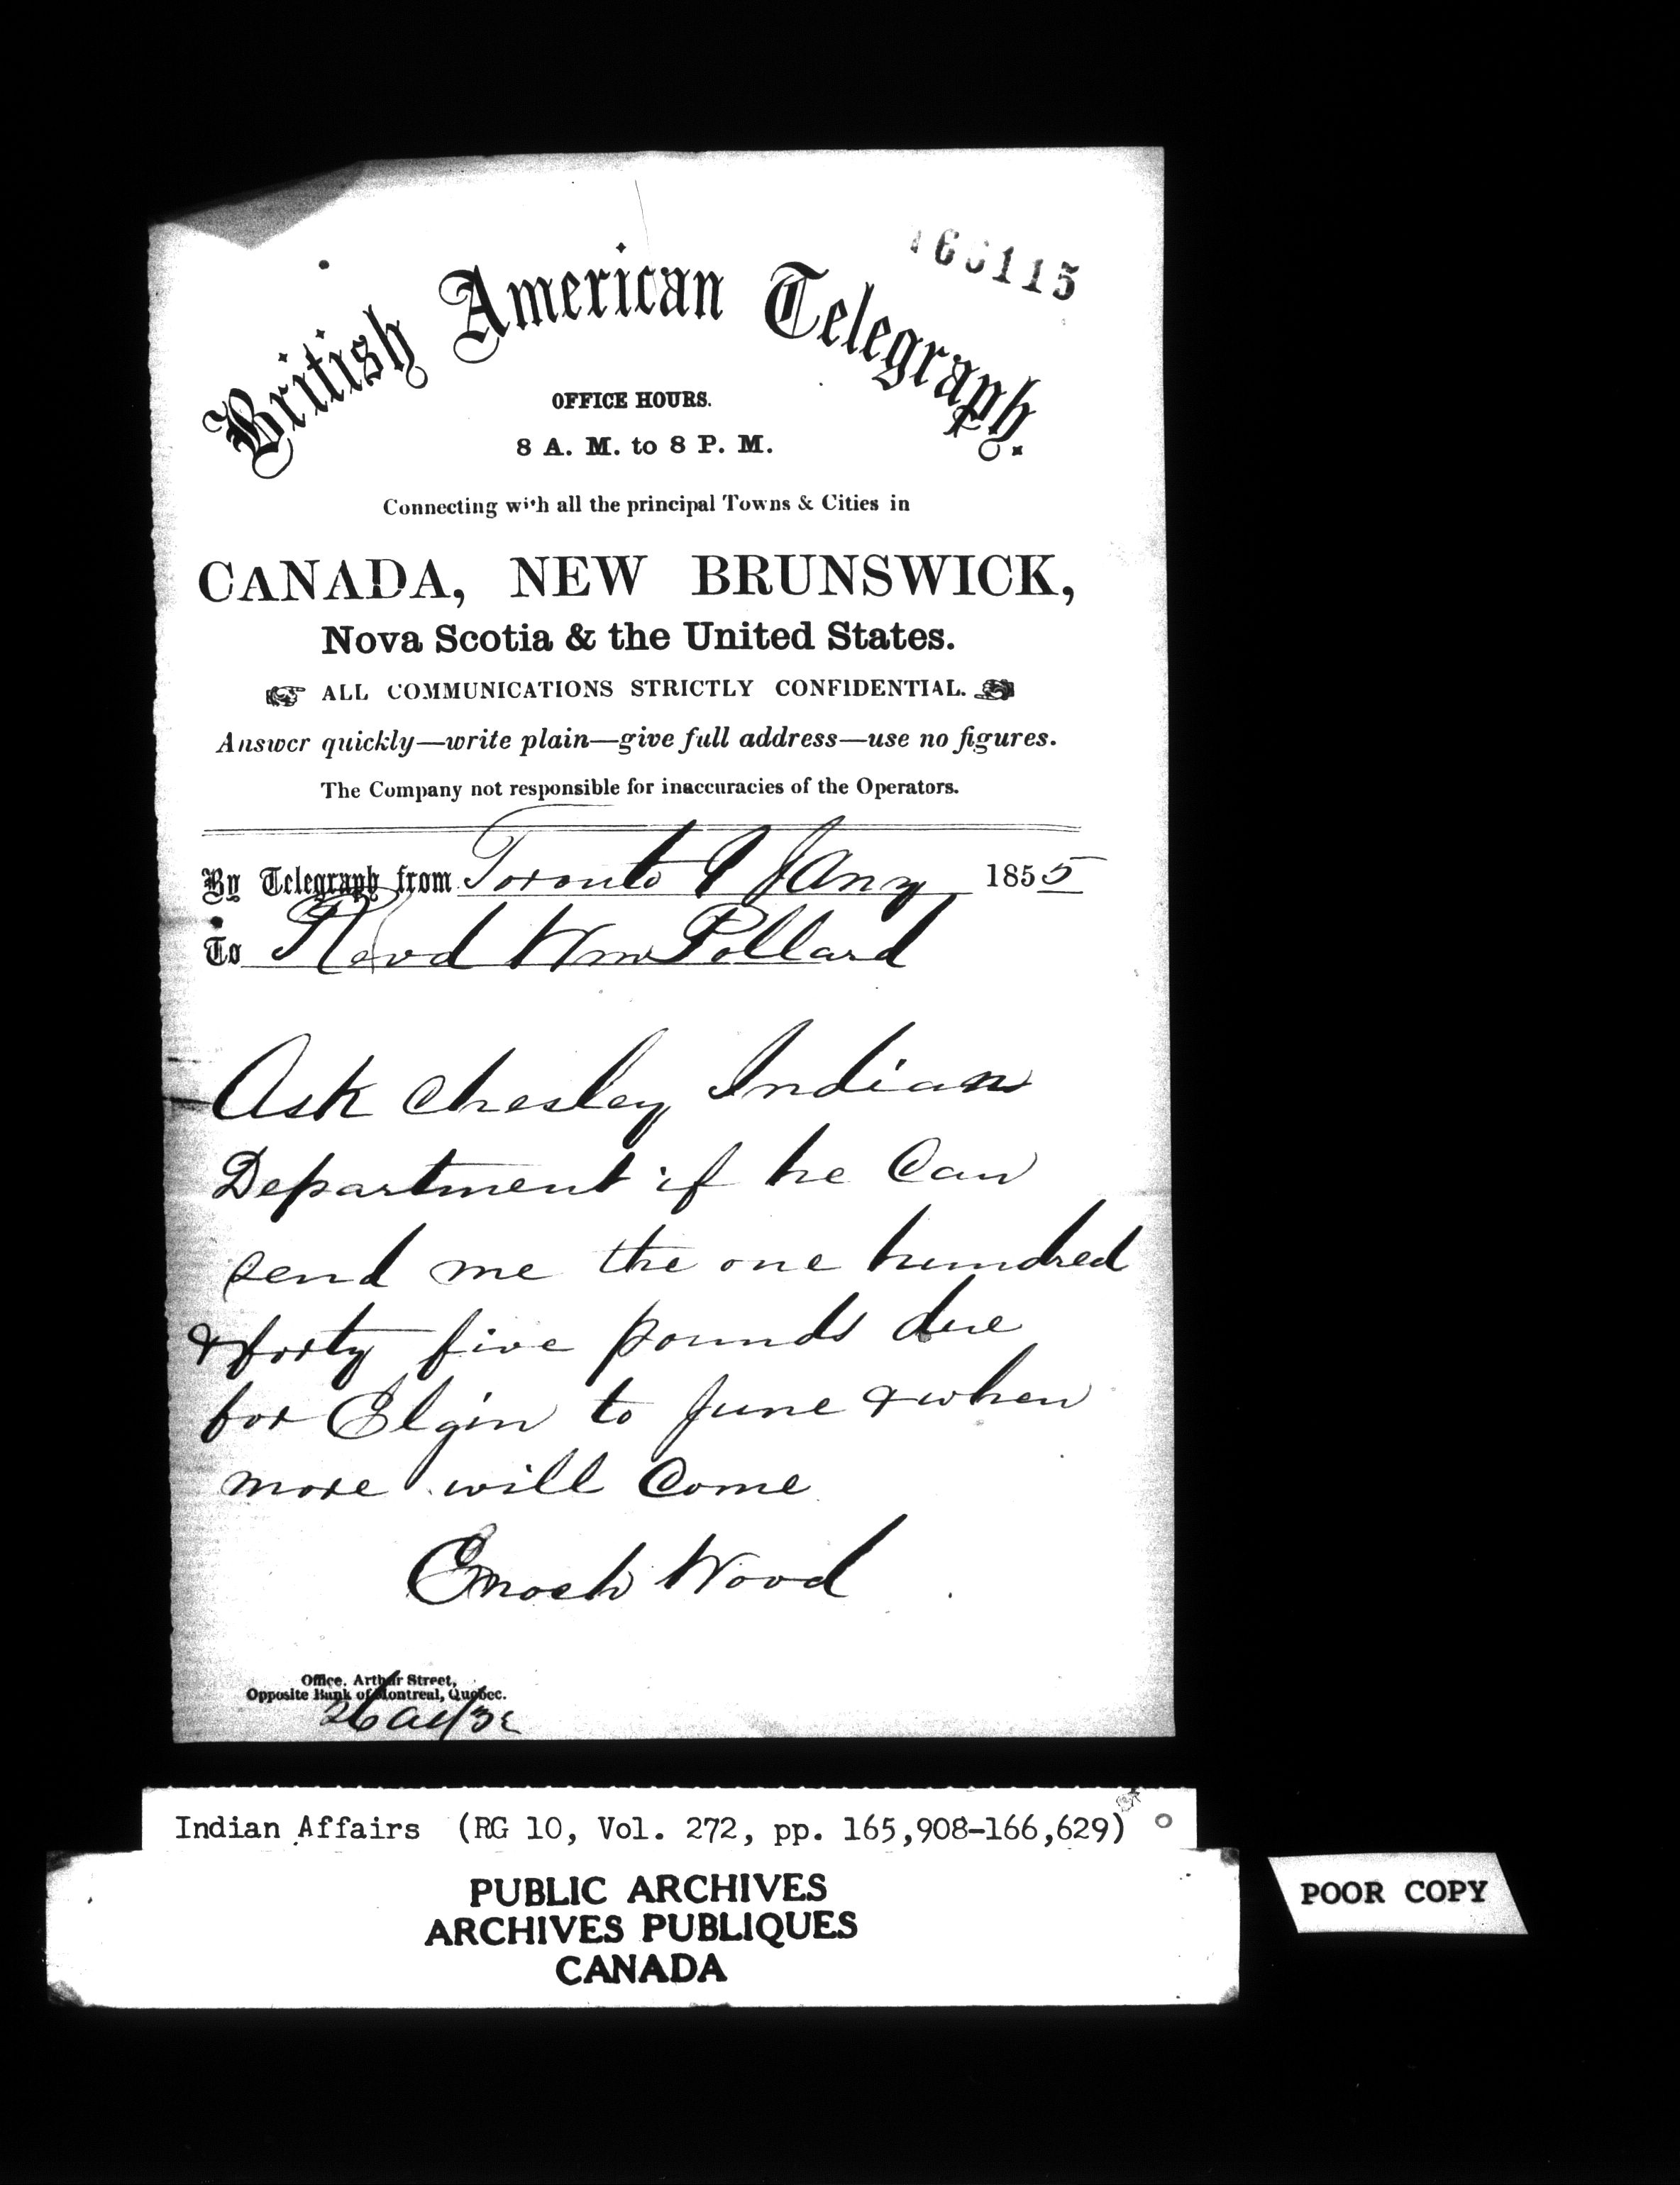 66115
British American Telegraph.
OFFICE HOURS.
8 A. M. to 8 P. M.
Connecting with all the principal Towns & Cities in
CANADA, NEW BRUNSWICK,
Nova Scotia & the United States.
ALL COMMUNICATIONS STRICTLY CONFIDENTIAL.
Answer quickly—write plain—give full address—use no figures.
The Company not responsible for inaccuracies of the Operators.
By Telegraph from Toronto 9 Jany 1855
To Revd Wm Pollard
Ask Chesley Indian
Department if he Can
send me the one hundred
& forty five pounds due
for Elgin to June & when
more will Come
Enoch Wood
Office, Arthur Street,
Opposite Bank of Montreal, Quebec.
Indian Affairs (RG 10, Vol. 272, pp. 165,908-166,629)
PUBLIC ARCHIVES
ARCHIVES PUBLIQUES
CANADA
POOR COPY